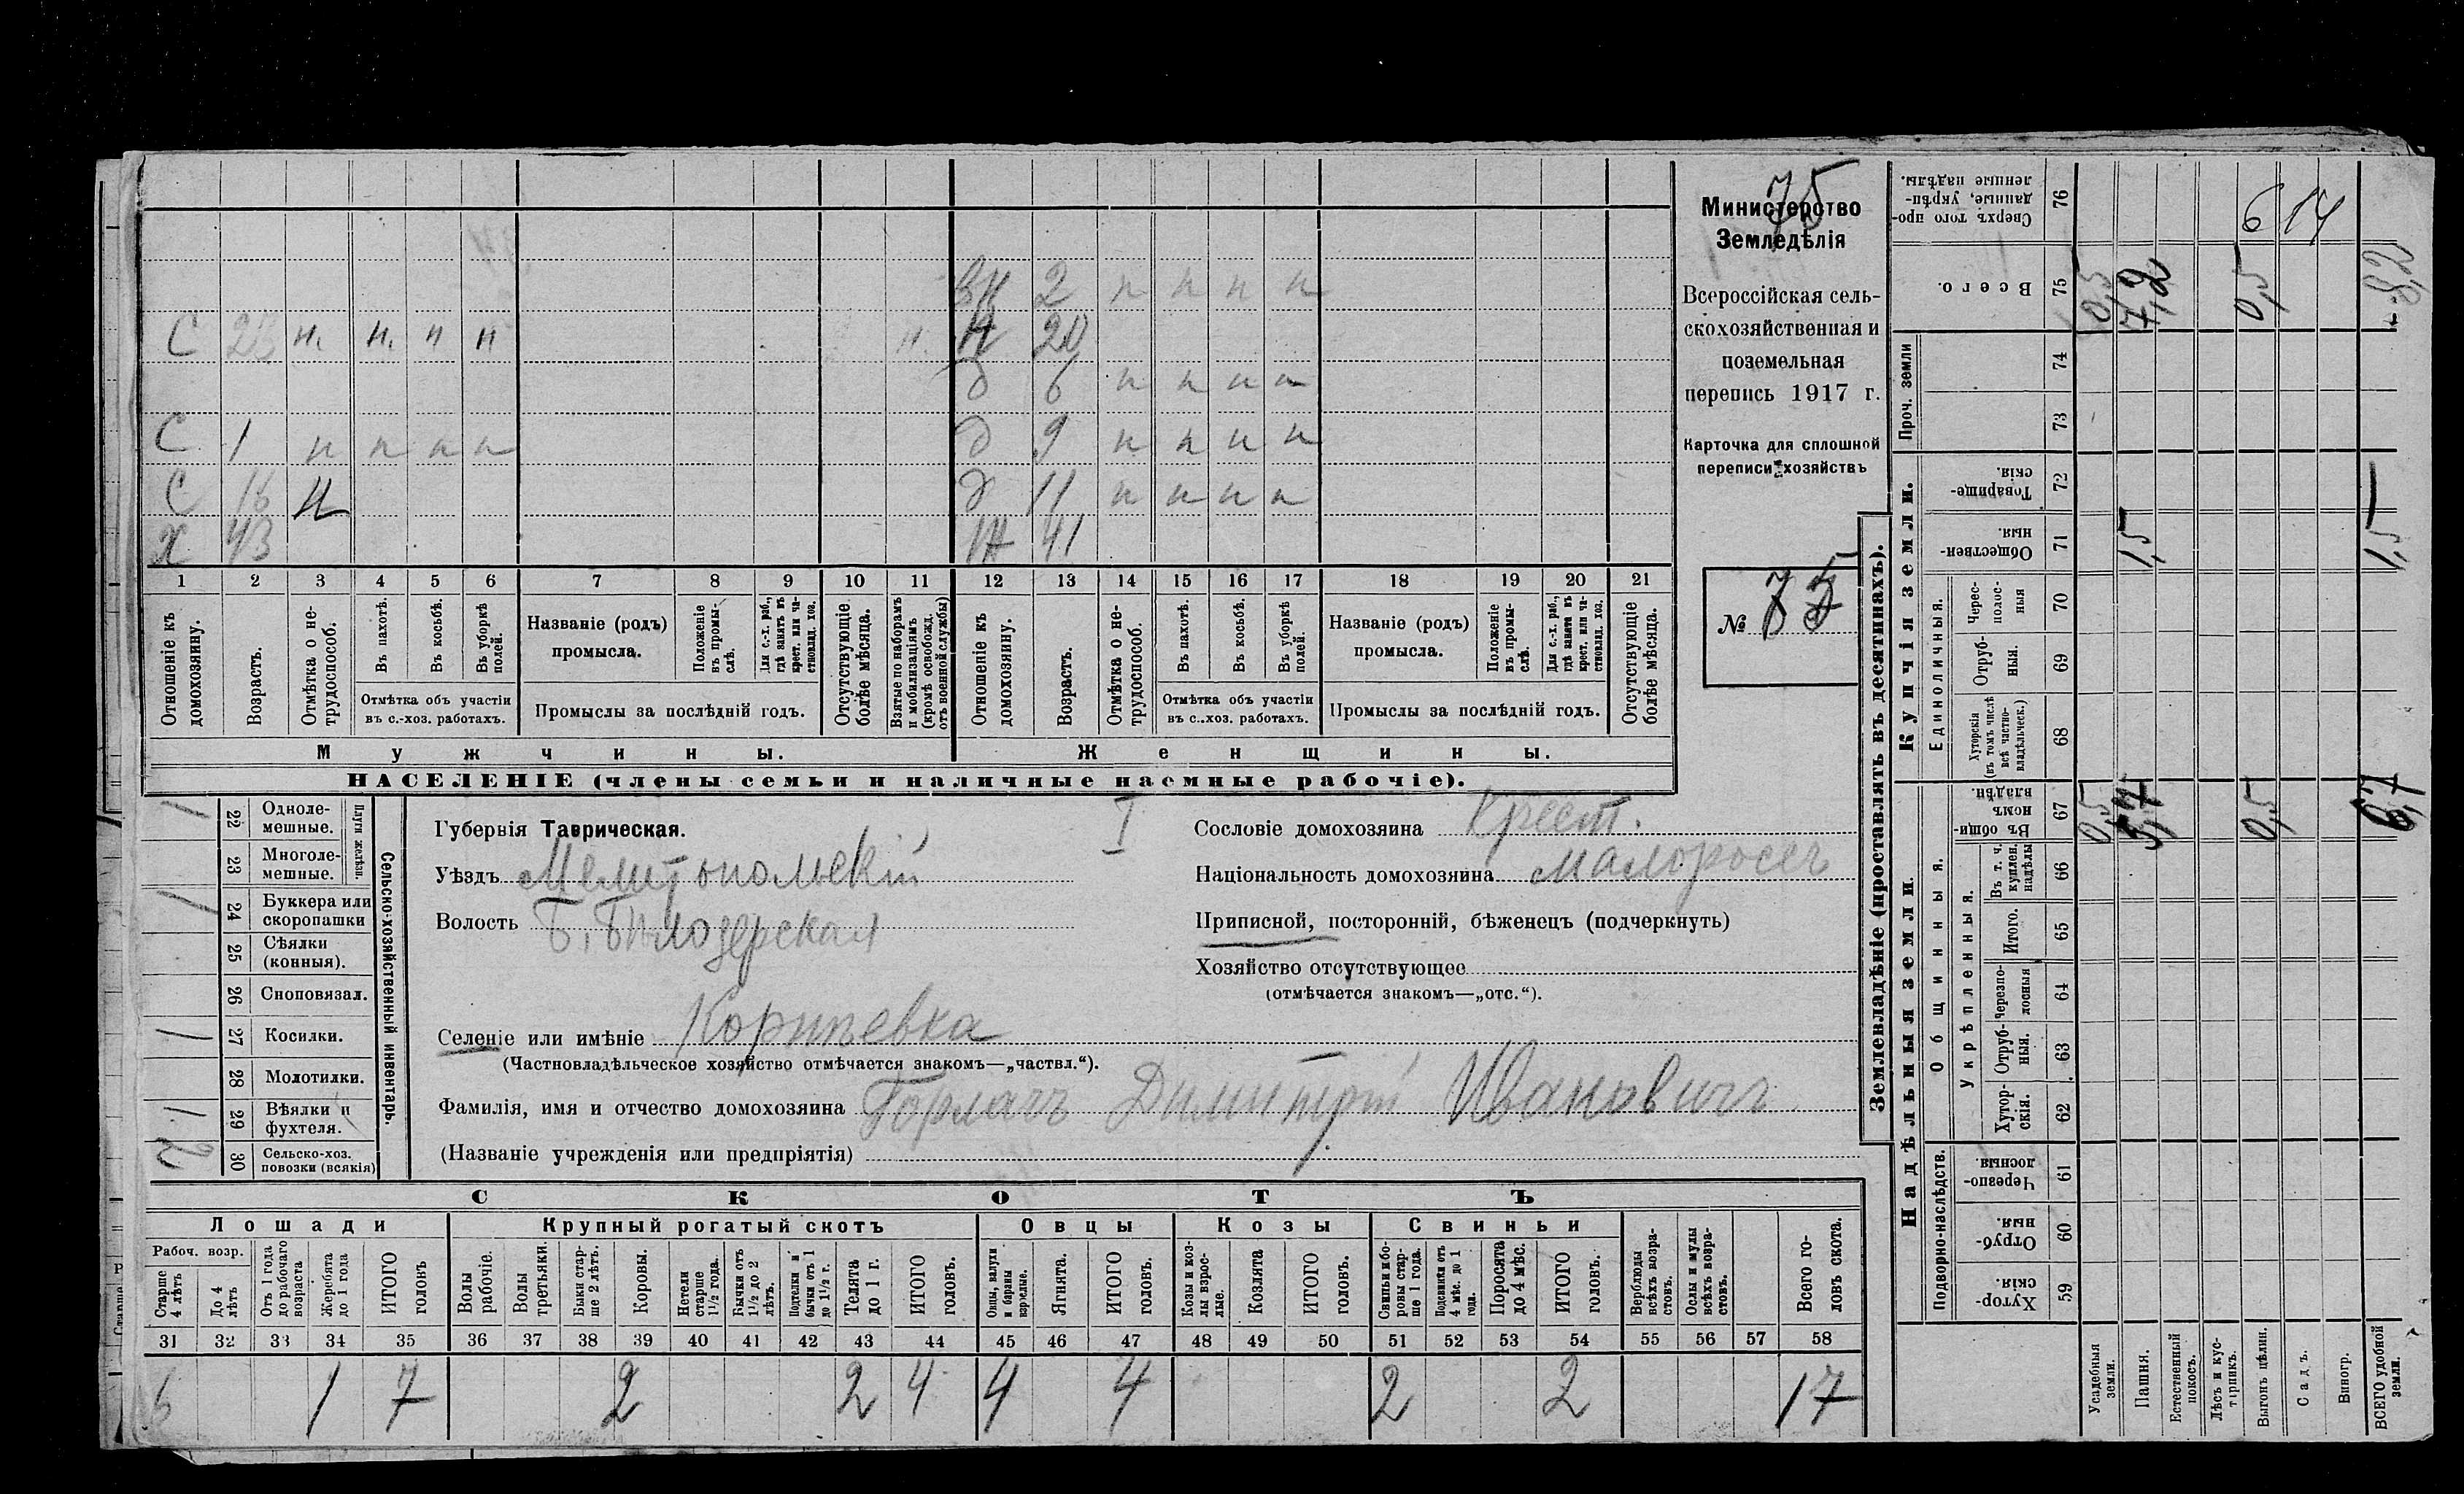 75
Министерство
Земледѣлія
Всероссійская сель-
скохозяйственная и
поземельная
перепись 1917 г.
Карточка для сплошной
переписи хозяйствъ
№ 75
вн 2 н н н н
С 23 н. н. н н н. н 20
д 6 н н н н
С 1 н н н н д 9 н н н н
С 16 н д 11 н н н н
х 43 ж 41
1 2 3 4 5 6 7 8 9 10 11 12 13 14 15 16 17 18 19 20 21
Отношеніе къ домохозяину.
Возрастъ.
Отмѣтка о не-трудоспособ.
Въ пахотѣ.
Въ косьбѣ.
Въ уборкѣ полей.
Отмѣтка объ участіи
въ с.-хоз. работахъ.
Названіе (родъ)
промысла.
Положеніе въ промы-слѣ.
Для с.-х. раб., гдѣ занятъ въ крест. или ча-стновлад. хоз.
Промыслы за послѣдній годъ.
Отсутствующіе болѣе мѣсяца.
Взятые по наборамъ и мобилизаціямъ (кромѣ освобожд. отъ военной службы)
Отношеніе къ домохозяину.
Возрастъ.
Отмѣтка о не-трудоспособ.
Въ пахотѣ.
Въ косьбѣ.
Въ уборкѣ полей.
Отмѣтка объ участіи
въ с.-хоз. работахъ.
Названіе (родъ)
промысла.
Положеніе въ промы-слѣ.
Для с.-х. раб., гдѣ занята въ крест. или ча-стновлад. хоз.
Промыслы за послѣдній годъ.
Отсутствующіе болѣе мѣсяца.
Мужчины. Женщины.
НАСЕЛЕНІЕ (члены семьи и наличные наемные рабочіе).
Сельско-хозяйственный инвентарь.
Плуги желѣзн.
1 22 Одноле-мешные.
23 Многоле-мешные.
1 24 Буккера или скоропашки
25 Сѣялки (конныя).
26 Сноповязал.
1 27 Косилки.
28 Молотилки.
1 29 Вѣялки и фухтеля.
2 30 Сельско-хоз. повозки (всякія)
Губернія Таврическая. I
Уѣздъ Мелитопольскій
Волость Б. Бѣлозерская
Селеніе или имѣніе
(Частновладѣльческое хозяйство отмѣчается знакомъ—„частвл.“).
Фамилія, имя и отчество домохозяина Горлачъ Димитрій Ивановичъ
(Названіе учрежденія или предпріятія)
Сословіе домохозяина Крест.
Національность домохозяина малороссъ
Приписной, посторонній, бѣженецъ (подчеркнуть)
Хозяйство отсутствующее
(отмѣчается знакомъ—„отс.“).
СКОТЪ
Лошади Крупный рогатый скотъ Овцы Козы Свиньи
Рабоч. возр.
Старше 4 лѣтъ
До 4 лѣтъ
Отъ 1 года до рабочаго возраста
Жеребята до 1 года
ИТОГО головъ
Волы рабочіе.
Волы третьяки.
Быки стар-ше 2 лѣтъ.
Коровы.
Нетели старше 1½ года.
Бычки отъ 1½ до 2 лѣтъ.
Подтелки и бычки отъ 1 до 1½ г.
Телята до 1 г.
ИТОГО головъ.
Овцы, валухи и бараны взрослые.
Ягнята.
ИТОГО головъ.
Козы и коз-лы взрос-лые.
Козлята
ИТОГО головъ.
Свиньи и бо-ровы стар-ше 1 года.
Подсвинки отъ 4 мѣс. до 1 года.
Поросята до 4 мѣс.
ИТОГО головъ.
Верблюды всѣхъ возра-стовъ.
Ослы и мулы всѣхъ возра-стовъ.
Всего го-ловъ скота.
31 32 33 34 35 36 37 38 39 40 41 42 43 44 45 46 47 48 49 50 51 52 53 54 55 56 57 58
6 1 7 2 2 4 4 4 2 2 17
Землевладѣніе (проставлять въ десятинахъ).
Надѣльныя земли. Купчія земли. Проч. земли
Подворно-наслѣдств. Общинныя. Единоличныя.
Укрѣпленныя.
59 Хутор-скія.
60 Отруб-ныя.
61 Черезпо-лосныя
62 Хутор-скія.
63 Отруб-ныя.
64 Черезпо-лосныя
65 Итого.
66 Въ т. ч. куплен. надѣлы
67 Въ общин-номъ владѣн.
68 Хуторскія (въ томъ числѣ всѣ частно-владѣльческ.)
69 Отруб-ныя.
70 Черес-полос-ныя
71 Обществен-ныя
72 Товарище-скія.
73
74
75 Всего.
76 Сверхъ того про-данные, укрѣп-ленные надѣлы.
Усадебныя земли. 0,5 0,5
Пашня. 5,7 1,5 7,2
Естественный покосъ.
Лѣсъ и кус-тарникъ.
Выгонъ цѣлин. 0,5 0,5 6
Садъ. 14
Виногр.
ВСЕГО удобной земли. 6,7 1,5 8,2